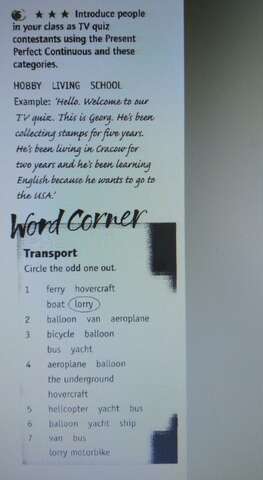 ★ ★ ★ Introduce people
in your class as TV quiz
contestants using the Present
Perfect Continuous and these
categories.
HOBBY LIVING SCHOOL
Example: 'Hello. Welcome to our
TV quiz. This is Georg. He's been
collecting stamps for five years.
He's been living in Cracow for
two years and he's been learning
English because he wants to go to
the USA.'
Word Corner
Transport
Circle the odd one out.
1 ferry hovercraft
boat lorry
2 balloon van aeroplane
3 bicycle balloon
bus yacht
4 aeroplane balloon
the underground
hovercraft
5 helicopter yacht bus
6 balloon yacht ship
7 van bus
lorry motorbike